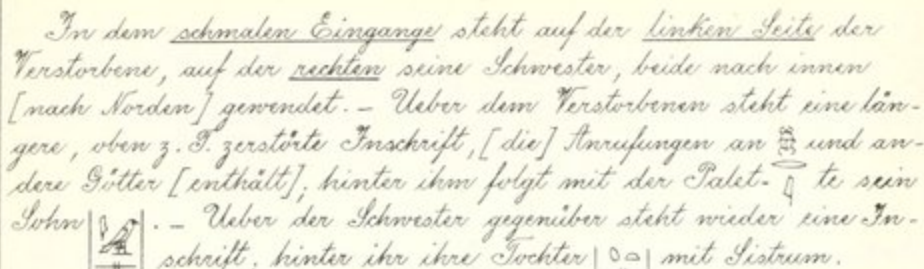 In dem schmalen Eingange steht auf der linken Seite der
Verstorbene, auf der rechten seine Schwester, beide nach innen
[nach Norden] gewendet. – Ueber dem Verstorbenen steht eine län-
gere, oben z. T. zerstörte Inschrift, [die] Anrufungen an und an-
dere Götter [enthält]; hinter ihm folgt mit der Palet- te sein
Sohn . – Ueber der Schwester gegenüber steht wieder eine In-
schrift, hinter ihr ihre Tochter mit Sistrum.